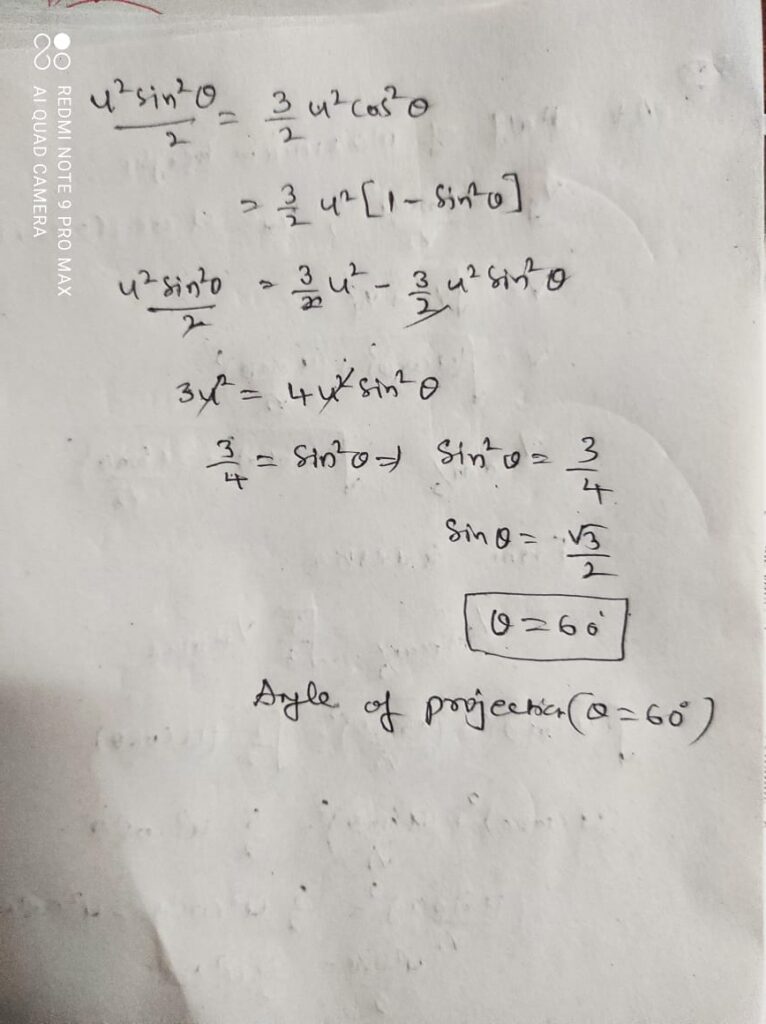 REDMI NOTE 9 PRO MAX
AI QUAD CAMERA
u² sin²θ / 2 = 3/2 u² cos²θ
= 3/2 u² [1 - sin²θ]
u² sin²θ / 2 = 3/2 u² - 3/2 u² sin²θ
3u² = 4u² sin²θ
3/4 = sin²θ ⇒ sin²θ = 3/4
sin θ = √3/2
θ = 60°
Angle of projection (θ = 60°)